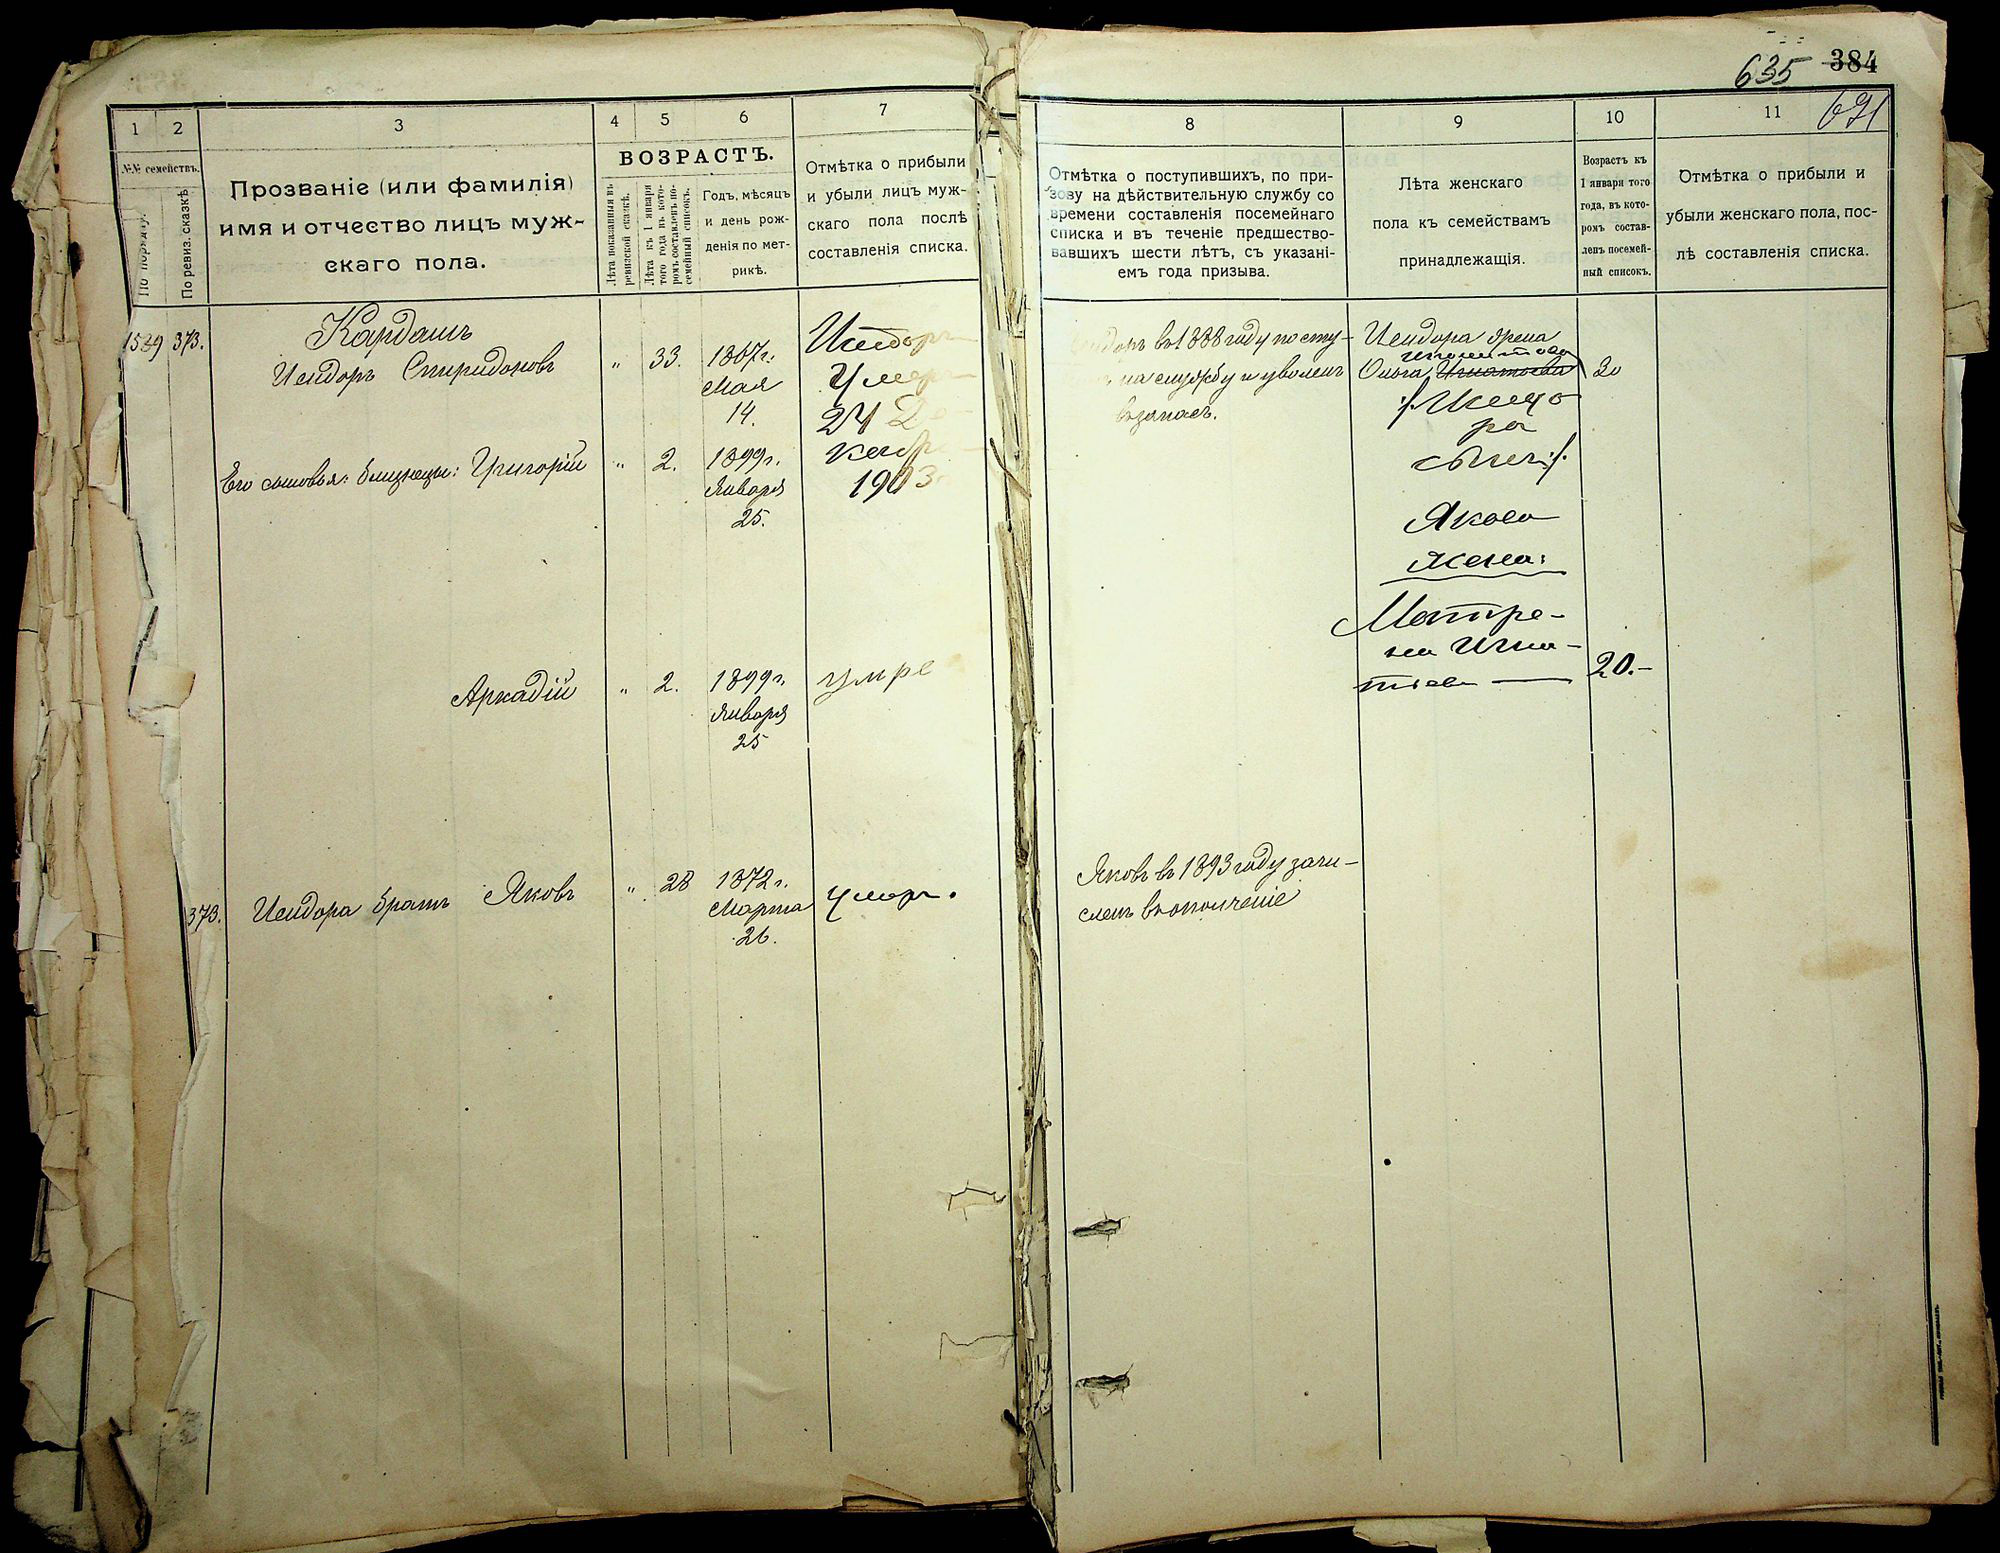 635 384
671
1 2 3 4 5 6 7
№№ семействъ.
По порядку.
По ревиз. сказкѣ
Прозваніе (или фамилія)
имя и отчество лицъ муж-
скаго пола.
ВОЗРАСТЪ.
Лѣта показанныя въ
ревизской сказкѣ.
Лѣта къ 1 января
того года въ кото-
ромъ составленъ по-
семейный списокъ.
Годъ, мѣсяцъ
и день рож-
денія по мет-
рикѣ.
Отмѣтка о прибыли
и убыли лицъ муж-
скаго пола послѣ
составленія списка.
1539 373.
Кардашъ
Исидоръ Спиридоновъ " 33. 1867 г.
Мая
14.
Исидоръ
Умеръ
24 Де-
кабр
1903.
Его сыновья: близнецы: Григорій " 2. 1899 г.
Января
25.
Аркадій " 2. 1899 г.
Января
25
умре
373. Исидора братъ Яковъ " 28 1872 г.
Марта
26.
умер.
8 9 10 11
Отмѣтка о поступившихъ, по при-
зову на дѣйствительную службу со
времени составленія посемейнаго
списка и въ теченіе предшество-
вавшихъ шести лѣтъ, съ указані-
емъ года призыва.
Лѣта женскаго
пола къ семействамъ
принадлежащія.
Возрастъ къ
1 января того
года, въ кото-
ромъ состав-
ленъ посемей-
ный списокъ.
Отмѣтка о прибыли и
убыли женскаго пола, пос-
лѣ составленія списка.
идоръ въ 1888 году посту-
на службу и уволенъ
въ запасъ.
Исидора жена
Ольга Игнатьева 30
Якова
жена:
Матре-
на Игна-
тьева 20.-
Яковъ въ 1893 году зачи-
сленъ въ ополченіе